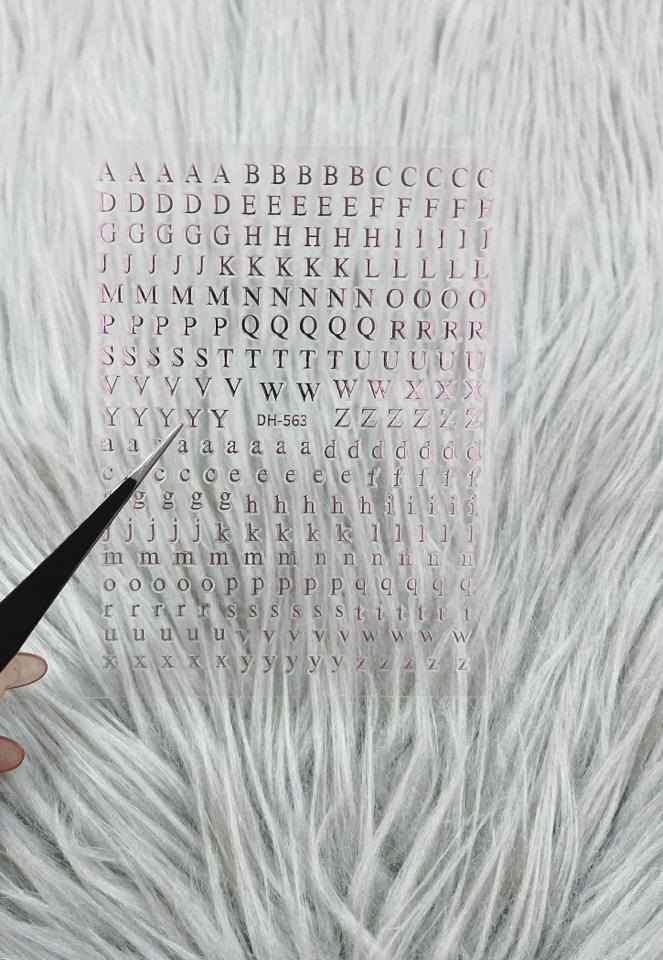 A A A A A B B B B B C C C C C
D D D D D E E E E E F F F F F
G G G G G H H H H H I I I I I
J J J J J K K K K K L L L L L
M M M M M N N N N N O O O O O
P P P P P Q Q Q Q Q R R R R R
S S S S S T T T T T U U U U U
V V V V V W W W W X X X
Y Y Y Y Y DH-563 Z Z Z Z Z Z
a a a a a a a a a d d d d d d
c c c c e e e e e f f f f f
g g g g h h h h h i i i i i
j j j j j k k k k k l l l l l
m m m m m m n n n n n n
o o o o o p p p p p q q q q q
r r r r r s s s s s t t t t t
u u u u u v v v v v w w w w
x x x x x y y y y y z z z z z